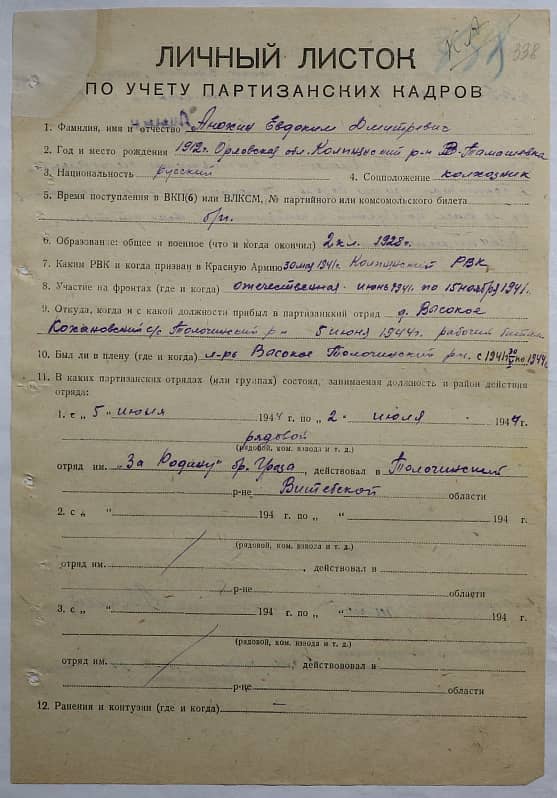 338
ЛИЧНЫЙ ЛИСТОК
ПО УЧЕТУ ПАРТИЗАНСКИХ КАДРОВ
1. Фамилия, имя и отчество Анохин Евдоким Дмитревич
2. Год и место рождения 1912г. Орловская обл. Колпнянский р-н
3. Национальность русский 4. Соцположение колхозник
5. Время поступления в ВКП(б) или ВЛКСМ, № партийного или комсомольского билета
б/п.
6. Образование: общее и военное (что и когда окончил) 2 кл. 1928г.
7. Каким РВК и когда призван в Красную Армию 30 мая 1941г. РВК
8. Участие на фронтах (где и когда) отечественная - июнь 1941г. по 15 ноября 1941г.
9. Откуда, когда и с какой должности прибыл в партизанский отряд д. Высокое
Кохановский с/с Толочинский р-н 5 июня 1944г. рабочий
10. Был ли в плену (где и когда) л-рь Высокое Толочинский р-н. с 1941 по 1944г
11. В каких партизанских отрядах (или группах) состоял, занимаемая должность и район действия
отряда:
1. с „ 5 " июня 1944 г. по „ 2 " июля 1944 г.
рядовой
(рядовой, ком. взвода и т. д.)
отряд им. „За Родину" бр. Гроза, действовал в Толочинский
р-не Витебской области
2. с „ " 194 г. по „ " 194 г.
(рядовой, ком. взвода и т. д.)
отряд им. , действовал в
р-не области
3. с „ " 194 г. по „ " 194 г.
(рядовой, ком. взвода и т. д.)
отряд им. , действововал в
р-не области
12. Ранения и контузии (где и когда) —